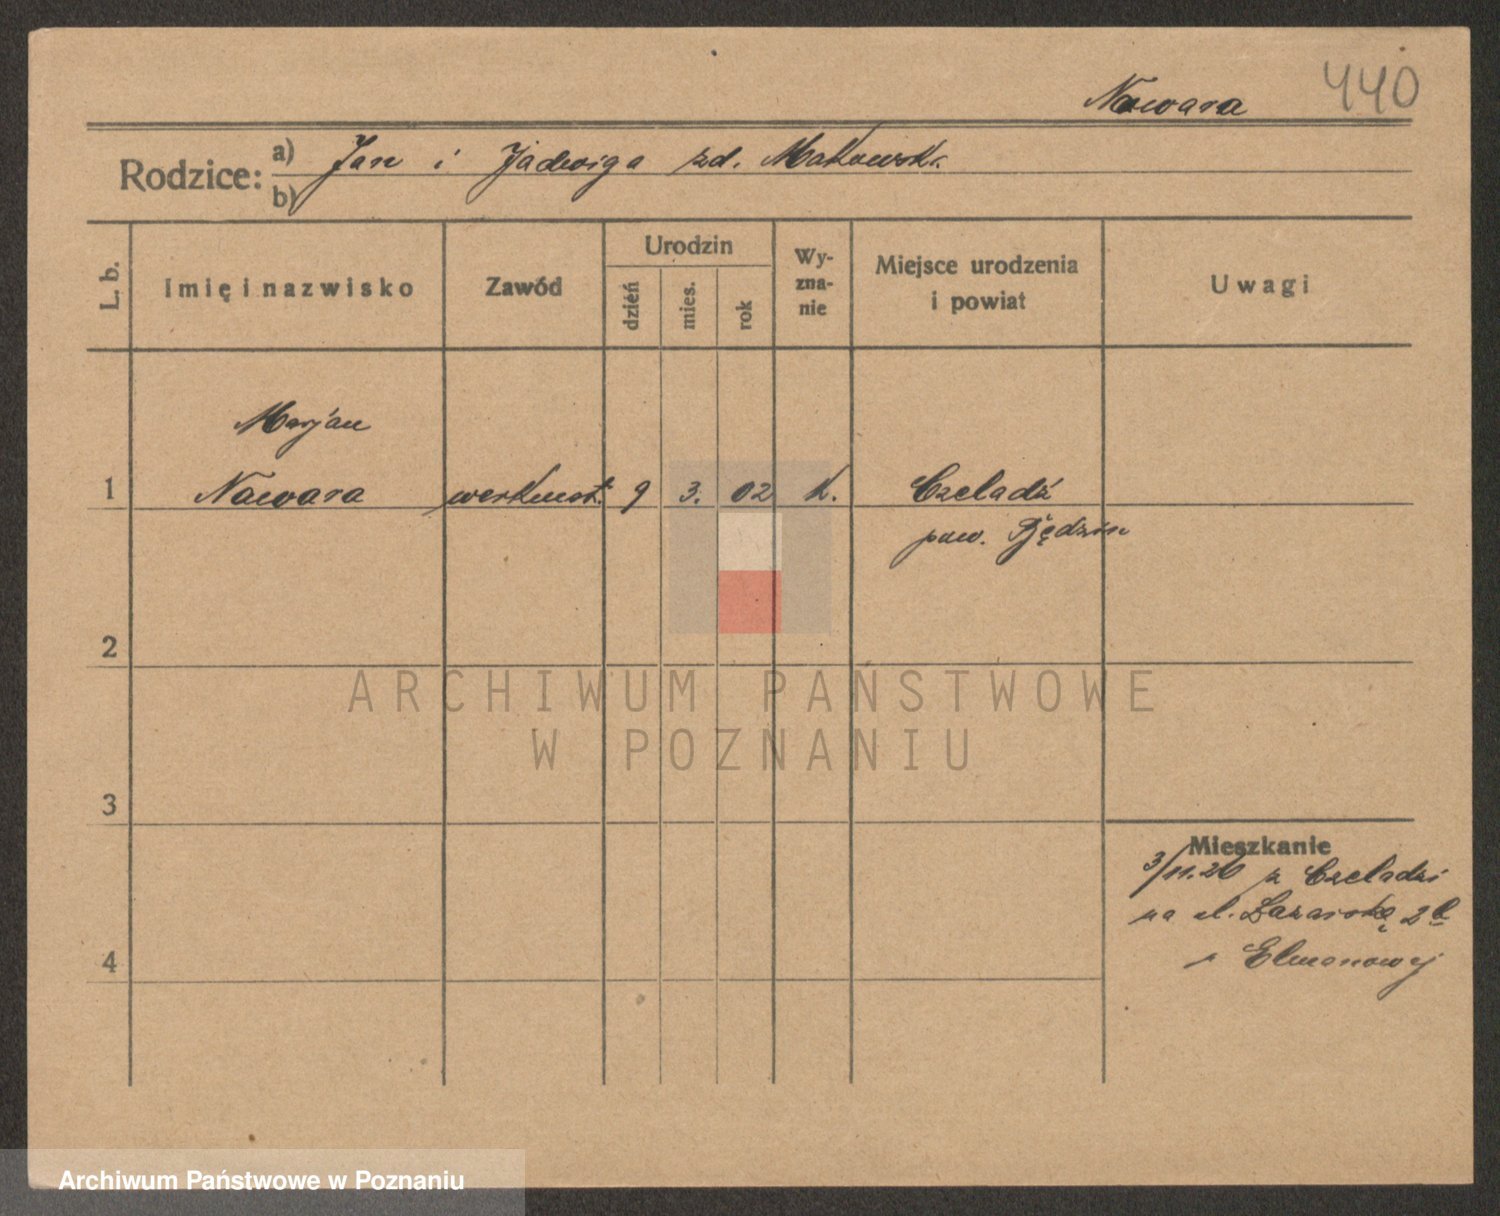 Nawara 440
Rodzice: a) Jan i Jadwiga zd. Makowsk.
b)
L. b. Imię i nazwisko Zawód Urodzin dzień mies. rok Wy-zna-nie Miejsce urodzenia i powiat Uwagi
Marjan
1 Nawara werkmst. 9 3. 02 k. Czeladź
pow. Będzin
2
ARCHIWUM PAŃSTWOWE
W POZNANIU
3
Mieszkanie
3/11.26 z Czeladzi
na ul. Łazarską 2
4
Archiwum Państwowe w Poznaniu